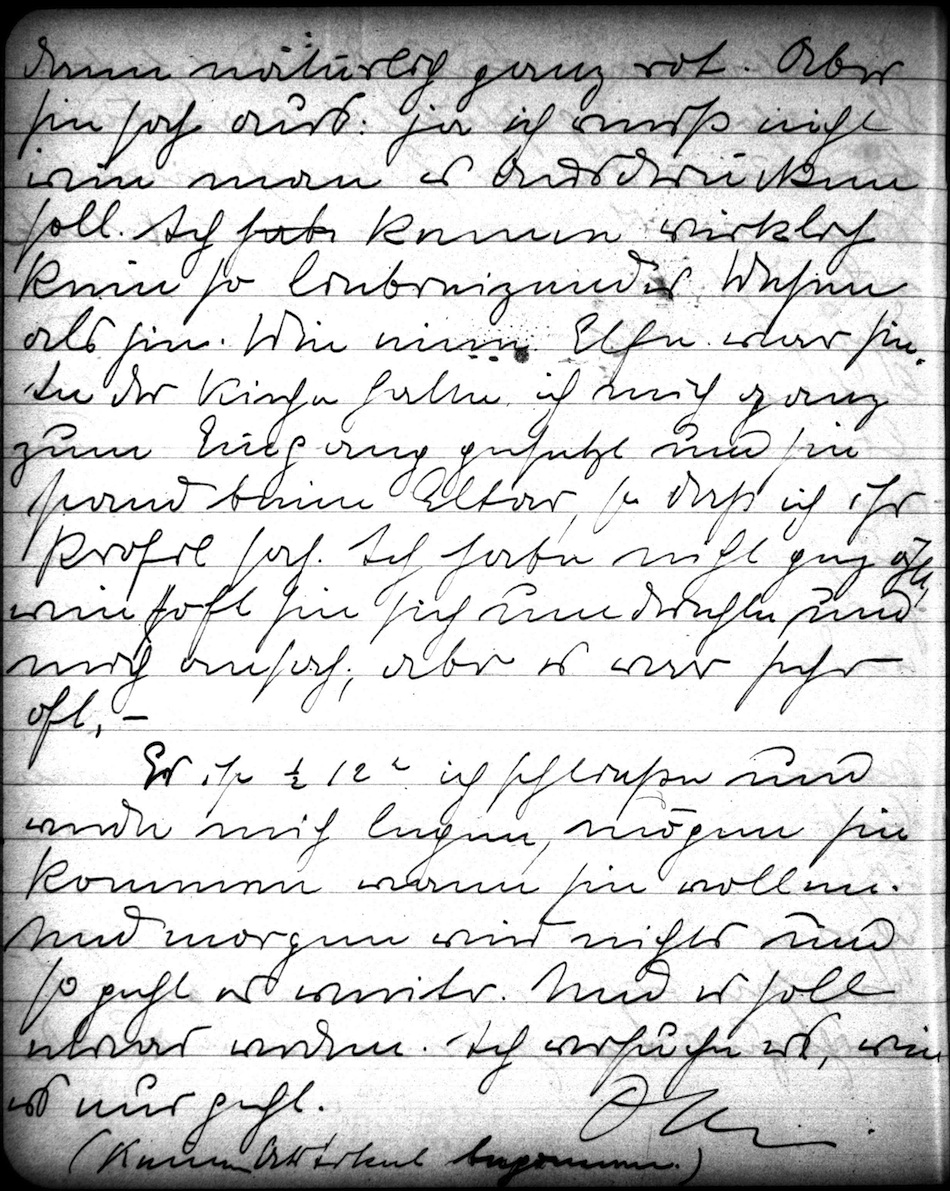 dann natürlich ganz rot. Aber
sie sah aus: ja ich weiß nicht
wie man es ausdrücken
soll. Ich hab kenne wirklich
kein so liebreizendes Wesen
als sie. Wie eine Elfe war sie.
In der Kirche hatte ich mich ganz
zum Eingang gesetzt und sie
stand beim Altar, so daß ich ihr
Profil sah. Ich habe nicht gezählt,
wie oft sie sich umdrehte und
mich ansah, aber es war sehr
oft, –
Es ist ½ 12 ich schließe und
werde mich legen, mögen sie
kommen wann sie wollen.
Und morgen wird nichts und
so geht es weiter. Und es soll
etwas werden. Ich versuche es, wie
es nur geht.
(Keinen begonnen.)